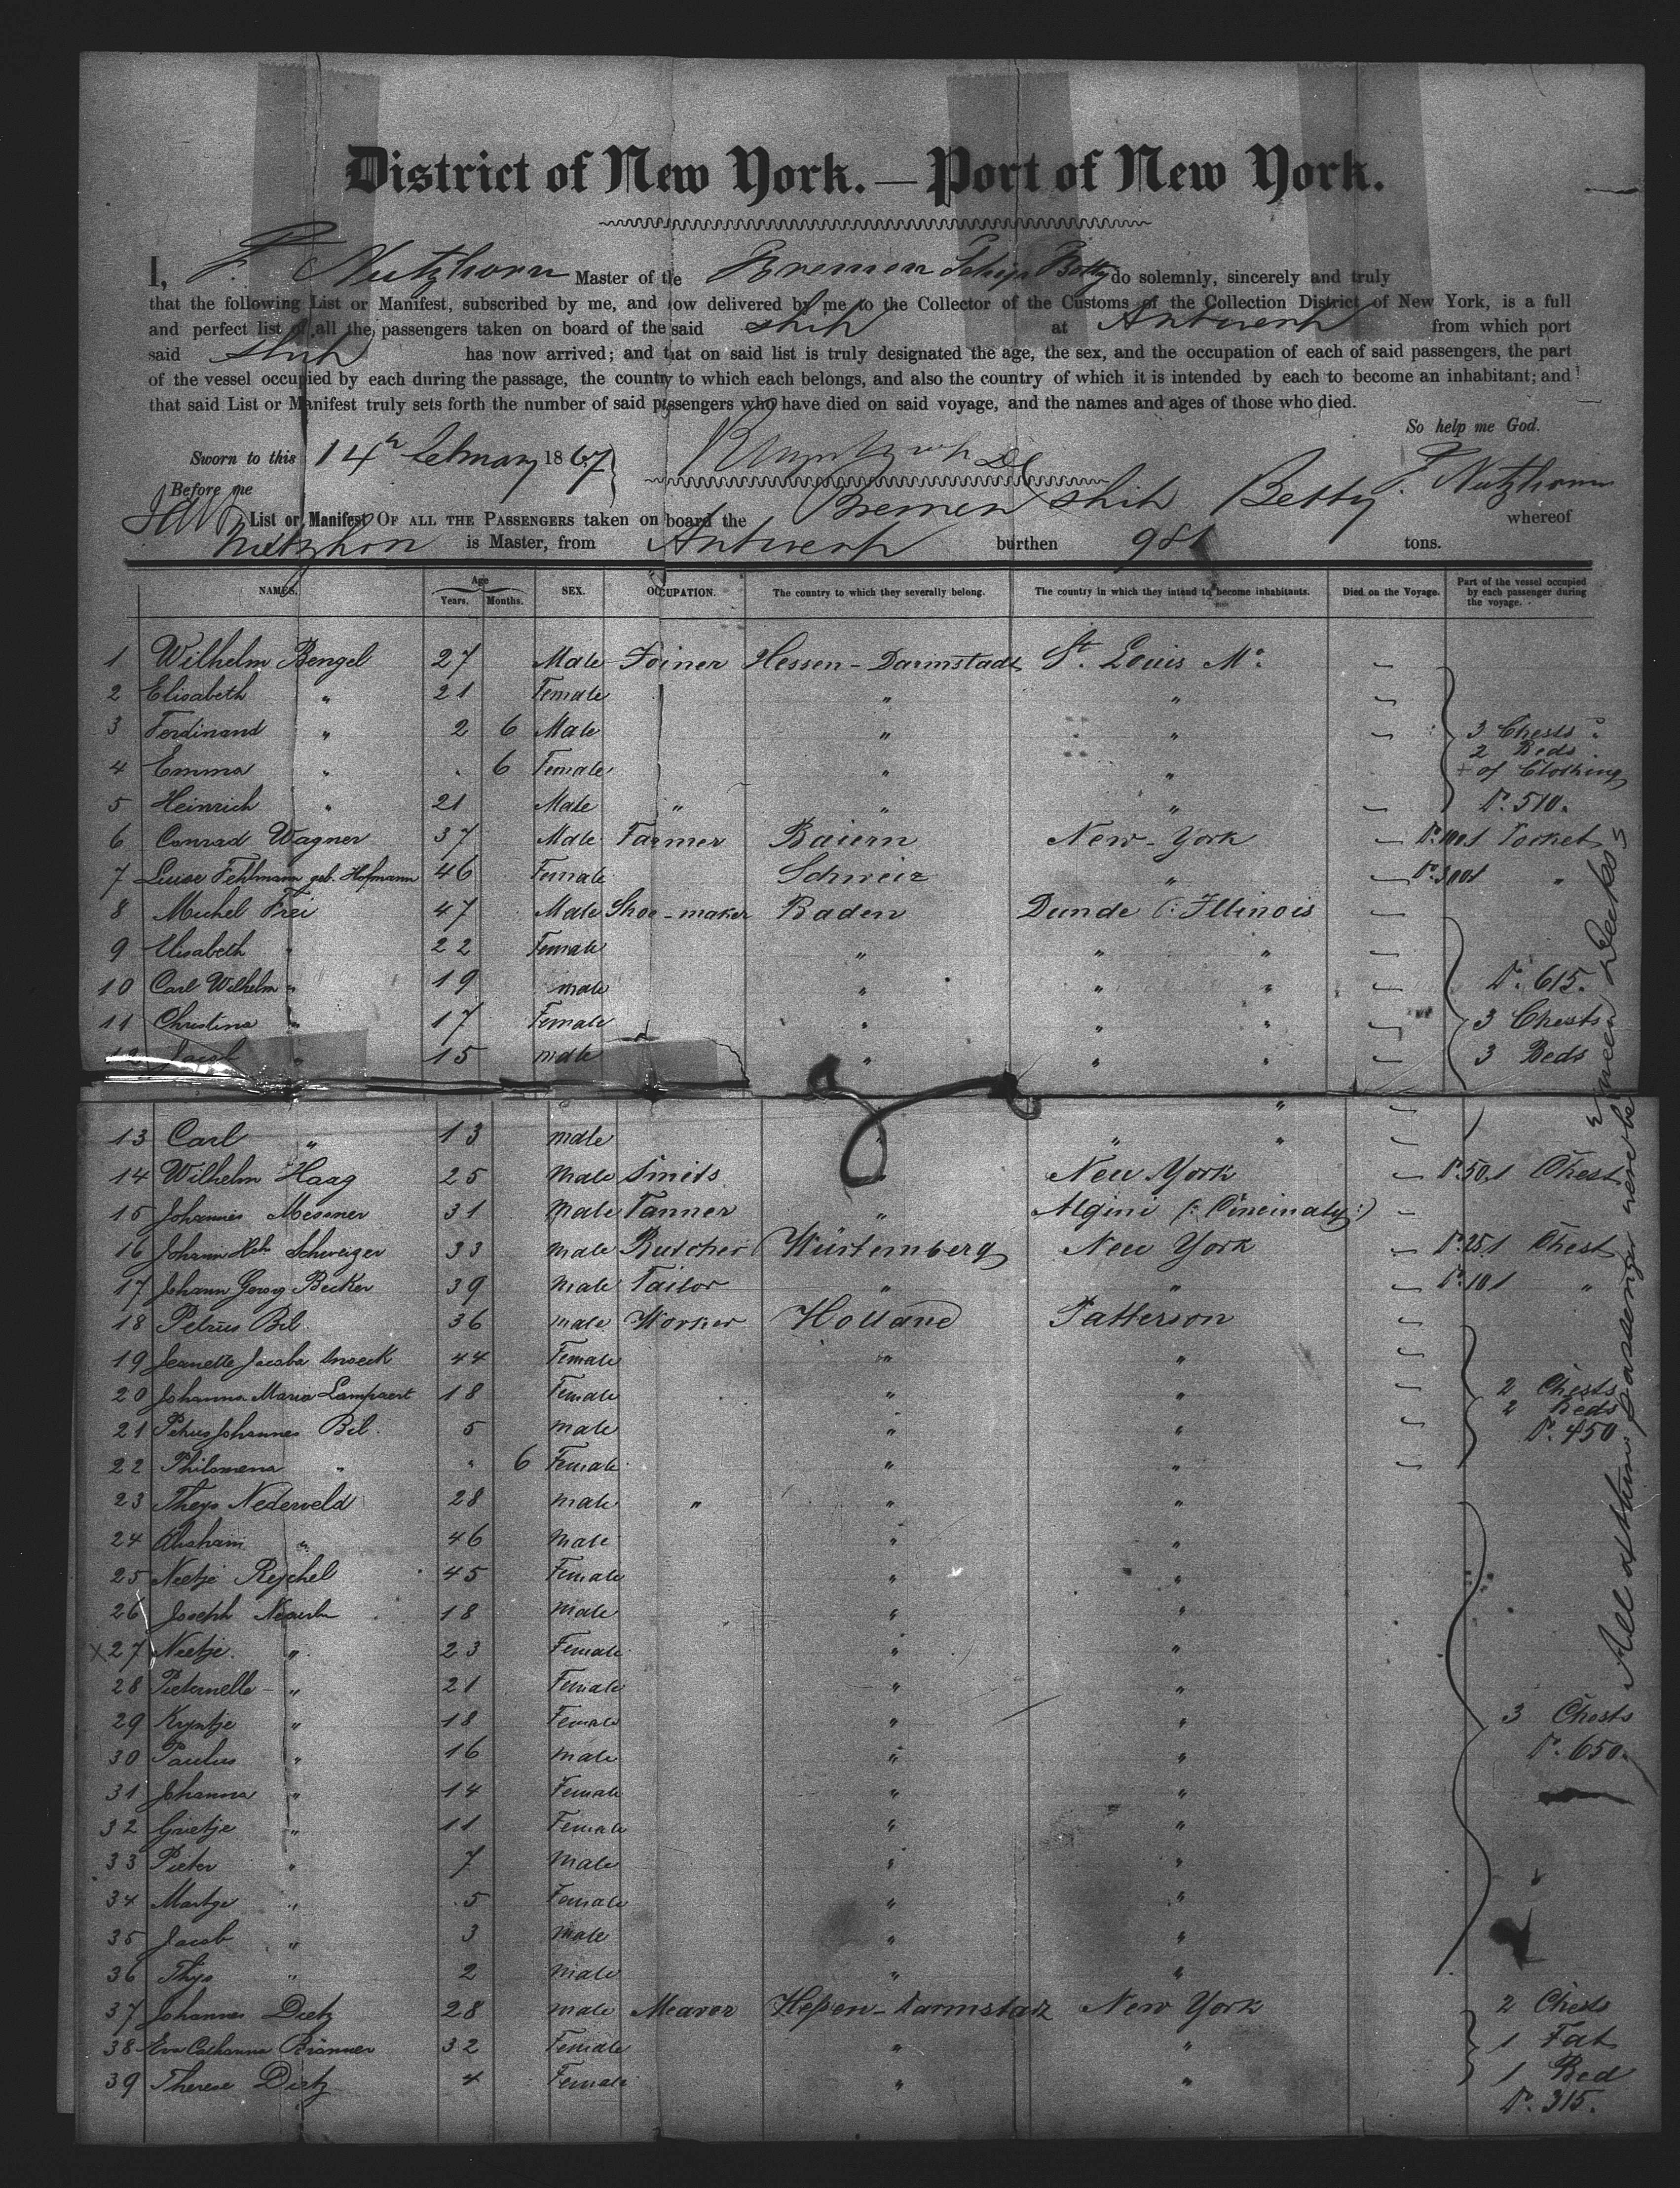 District of New York.—Port of New York.
I, F. Nutzhorn Master of the Bremen Ship Betty do solemnly, sincerely and truly
that the following List or Manifest, subscribed by me, and now delivered by me to the Collector of the Customs of the Collection District of New York, is a full
and perfect list of all the passengers taken on board of the said ship at Antwerp from which port
said ship has now arrived; and that on said list is truly designated the age, the sex, and the occupation of each of said passengers, the part
of the vessel occupied by each during the passage, the country to which each belongs, and also the country of which it is intended by each to become an inhabitant; and
that said List or Manifest truly sets forth the number of said passengers who have died on said voyage, and the names and ages of those who died.
So help me God.
Sworn to this 14th February 1867
F. Nutzhorn
Before me
List or Manifest OF ALL THE PASSENGERS taken on board the Bremen ship Betty whereof
Nutzhorn is Master, from Antwerp burthen 981 tons.
NAMES. Age Years. Months. SEX. OCCUPATION. The country to which they severally belong. The country in which they intend to become inhabitants. Died on the Voyage. Part of the vessel occupied by each passenger during the voyage.
1 Wilhelm Bengel 27 Male Joiner Hessen-Darmstadt St. Louis Mo. —
2 Elisabeth " 21 Female " " —
3 Ferdinand " 2 6 Male " " — 3 Chests
2 Beds
4 Emma " . 6 Female " " of Clothing
5 Heinrich " 21 Male " " " — Nº. 510.
6 Conrad Wagner 37 Male Farmer Baiern New-York — Nº. 100.1 Pocket
7 Luise Fehlmann geb. Hofmann 46 Female Schweiz " — Nº. 300.1 "
8 Michel Frei 47 Male Shoe-maker Baden Dunde (: Illinois —
9 Elisabeth " 22 Female " " " —
10 Carl Wilhelm " 19 male " " " — Nº. 615.
11 Christina " 17 Female " " " — 3 Chests
12 Jacob " 15 male " " " — 3 Beds
13 Carl " 13 male " " " —
14 Wilhelm Haag 25 male Smits " New York — Nº. 50.1 Chest
15 Johannes Messner 31 male Tanner " Algini (: Cincinaty :) —
16 Johann Hch. Schweizer 33 male Butcher Würtemberg New York — Nº. 25.1 Chest
17 Johann Georg Becker 39 male Tailor " " — Nº. 10 1 "
18 Petrus Bil. 36 male Worker Holland Patterson —
19 Jeanette Jacoba Snoeck 44 Female " " —
20 Johanna Maria Lampaert 18 Female " " — 2 Chests
2 Beds
21 Petrus Johannes Bil. 5 male " " — Nº. 450
22 Philomena " " 6 Female " " —
23 Theys Nederveld 28 male " " "
24 Abraham " 46 male " "
25 Neetje Reychel 45 Female " "
26 Joseph 18 male " "
x 27 Neetje " 23 Female " "
28 Pieternelle " 21 Female " "
29 Kryntje " 18 Female " " 3 Chests
30 Paulus " 16 male " " Nº. 650.
31 Johanna " 14 Female " "
32 Grietje " 11 Female " "
33 Pieter " 7 male " "
34 Martge " 5 Female " "
35 Jacob " 3 male " "
36 Thys " 2 male " "
37 Johannes Dietz 28 male Meaver Hessen-Darmstatz New York 2 Chests
38 Eva Catharina Brönner 32 Female " " 1 Fat
39 Therese Dietz 4 Female " " 1 Bed
Nº. 315.
All of these passenger were be tween Decks